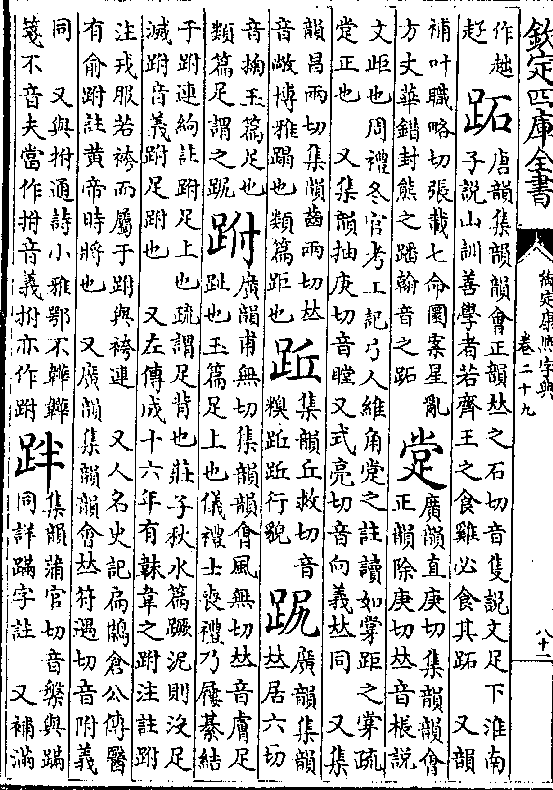 欽定四庫全書
御定康熙字典
卷二十九
八十一
作越
跖
唐韻集韻韻會正韻𠀤之石切音隻說文足下淮南
子說山訓善學者若齊王之食雞必食其跖 又韻
補叶職略切張載七命圜案星亂
方丈華錯封熊之蹯翰音之跖
䟫
廣韻直庚切集韻韻會
正韻除庚切𠀤音棖說
文歫也周禮冬官考工記弓人維角䟫之註讀如掌距之掌疏
䟫正也 又集韻抽庚切音瞠又式亮切音向義𠀤同 又集
韻昌兩切集韻齒兩切𠀤
音敞博雅蹋也類篇距也
䟬
集韻丘救切音
糗䟬䟬行貌
廣韻集韻
𠀤居六切
音掬玉篇足也
類篇足謂之
跗
廣韻甫無切集韻韻會風無切𠀤音膚足
趾也玉篇足上也儀禮士喪禮乃屨綦結
于跗連絇註跗足上也疏謂足背也莊子秋水篇蹶泥則沒足
滅跗音義跗足跗也 又左傳成十六年有韎韋之跗注註跗
注戎服若袴而屬于跗與袴連 又人名史記扁鵲倉公傳醫
有俞跗註黃帝時將也 又廣韻集韻韻會𠀤符遇切音附義
同 又與拊通詩小雅鄂不韡韡
箋不音夫當作拊音義拊亦作跗
跘
集韻蒲官切音槃與蹣
同詳蹣字註 又補滿